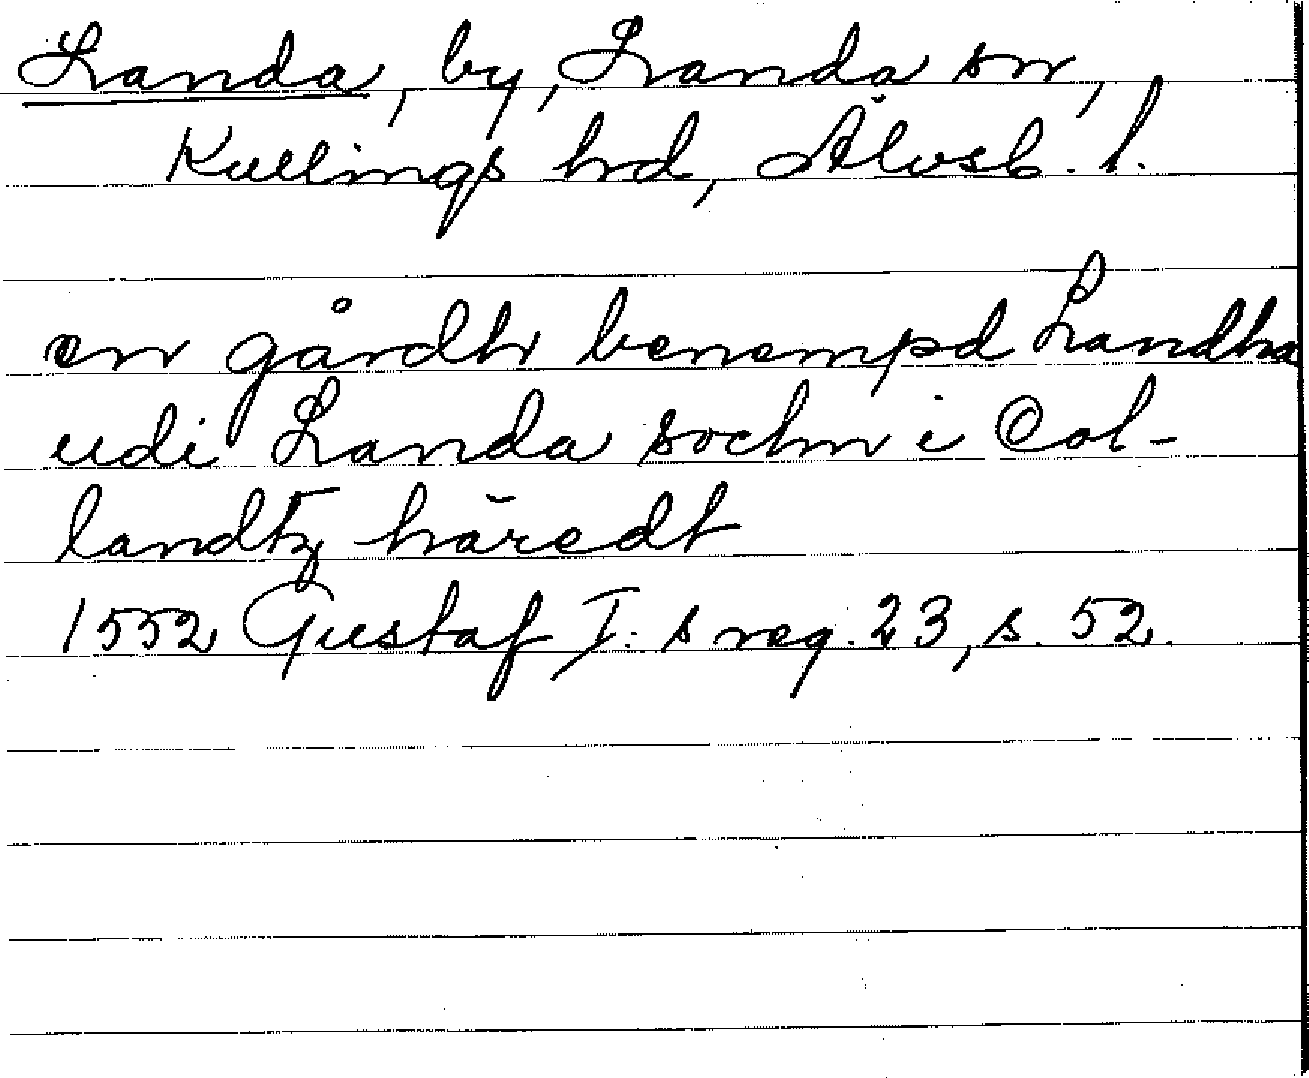 Landa, by, Landa sn,
Kullings hd, Älvsb. l.
en gårdh benempd Landha
udi Landa sochn i Col-
landtz häredt
1552 Gustaf I:s reg. 23, s. 52.